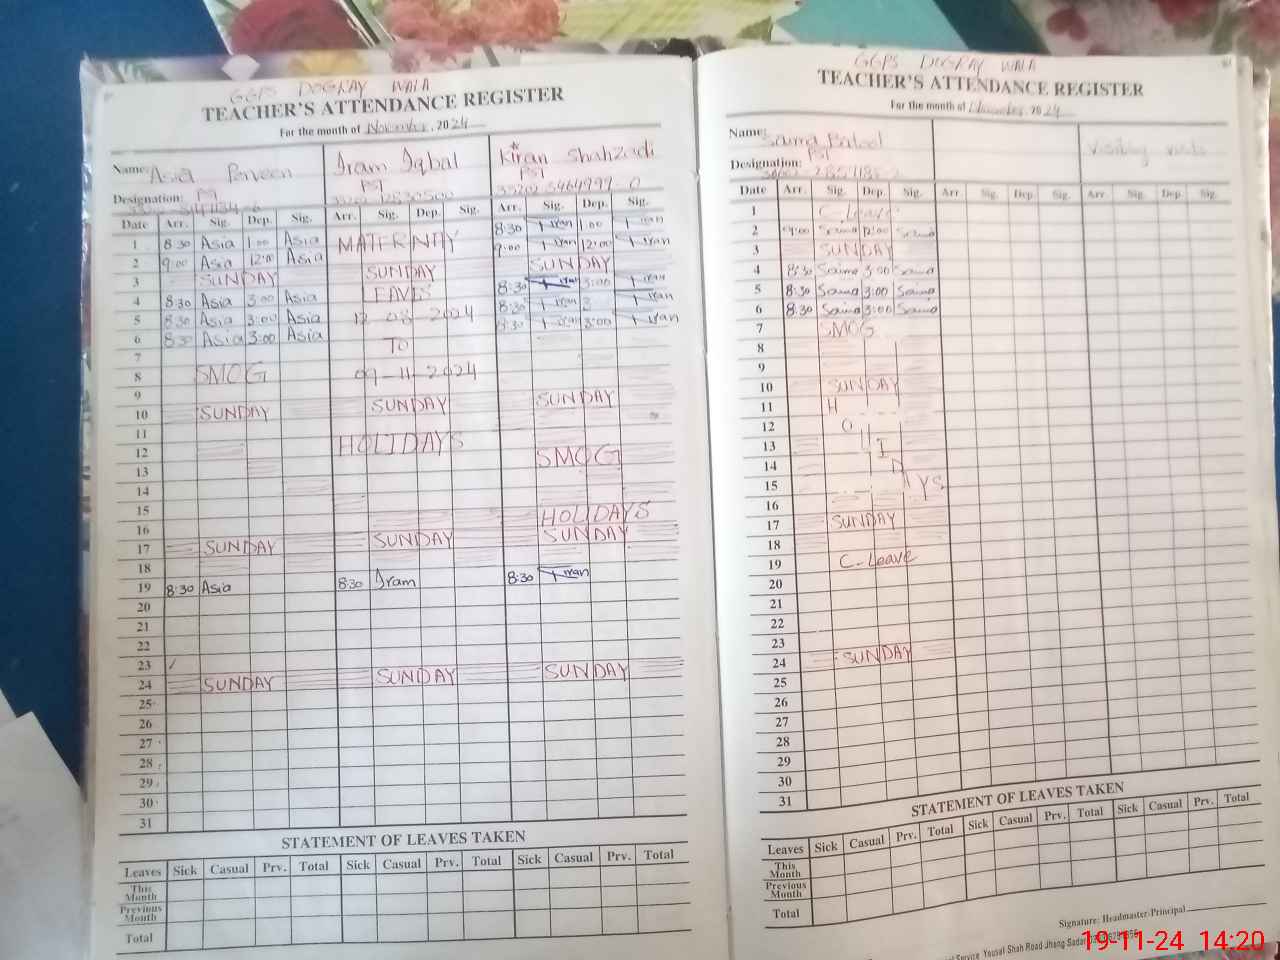 GGPS DOGRAY WALA
TEACHER'S ATTENDANCE REGISTER
For the month of November, 2024
Name: Asia Perveen Iram Iqbal Kiran Shahzadi
PST PST PST
Designation:
Date Arr. Sig. Dep. Sig. Arr. Sig. Dep. Sig. Arr. Sig. Dep. Sig.
1 8:30 Asia 1:00 Asia MATERNITY 8:30 Kiran 1:00 Kiran
2 9:00 Asia 12:00 Asia 9:00 Kiran 12:00 Kiran
3 SUNDAY SUNDAY SUNDAY
4 8:30 Asia 3:00 Asia LEAVES 8:30 Kiran 3:00 Kiran
5 8:30 Asia 3:00 Asia 12 08 2024 8:30 Kiran 3 Kiran
6 8:30 Asia 3:00 Asia TO 8:30 Kiran 3:00 Kiran
7
8 SMOG 09-11-2024
9
10 SUNDAY SUNDAY SUNDAY
11
12 HOLIDAYS
13 SMOG
14
15
16 HOLIDAYS
17 SUNDAY SUNDAY SUNDAY
18
19 8:30 Asia 8:30 Iram 8:30 Kiran
20
21
22
23
24 SUNDAY SUNDAY SUNDAY
25
26
27
28
29
30
31
STATEMENT OF LEAVES TAKEN
Leaves Sick Casual Prv. Total Sick Casual Prv. Total Sick Casual Prv. Total
This Month
Previous Month
Total
GGPS DOGRAY WALA
TEACHER'S ATTENDANCE REGISTER
For the month of November, 2024
Name: Saima Batool
PST
Designation:
Date Arr. Sig. Dep. Sig. Arr. Sig. Dep. Sig. Arr. Sig. Dep. Sig.
1 C-Leave
2 9:00 Saima 12:00 Saima
3 SUNDAY
4 8:30 Saima 3:00 Saima
5 8:30 Saima 3:00 Saima
6 8:30 Saima 3:00 Saima
7 SMOG
8
9
10 SUNDAY
11 H
12 O
13 L I
14 D
15 AYS
16
17 SUNDAY
18
19 C-Leave
20
21
22
23
24 SUNDAY
25
26
27
28
29
30
31
STATEMENT OF LEAVES TAKEN
Leaves Sick Casual Prv. Total Sick Casual Prv. Total Sick Casual Prv. Total
This Month
Previous Month
Total
Signature: Headmaster/Principal
Service Yousaf Shah Road Jhang Sadar
19-11-24 14:20